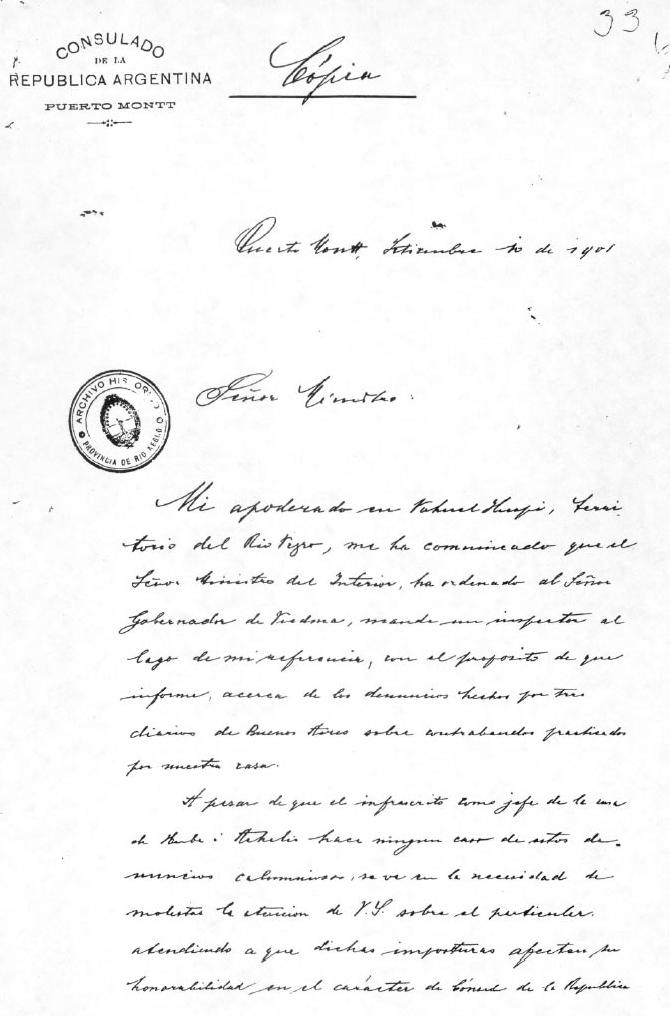 33
CONSULADO
DE LA
REPUBLICA ARGENTINA
PUERTO MONTT
Cópia
Puerto Montt, Setiembre 10 de 1901
ARCHIVO HISTORICO
PROVINCIA DE RIO NEGRO
Señor Ministro:
Mi apoderado en Nahuel Huapi, Terri-
torio del Rio Negro, me ha comunicado que el
Señor Ministro del Interior, ha ordenado al Señor
Gobernador de Viedma, mande un inspector al
lago de mi referencia, con el propósito de que
informe, acerca de los denuncios hechos por tres
diarios de Buenos Aires sobre contrabandos practicados
por nuestra casa.
A pesar de que el infrascrito como jefe de la casa
de Hube i Achelis hace ningun caso de estos de-
nuncios calumniosos, se ve en la necesidad de
molestar la atencion de V.S. sobre el particular.
atendiendo a que dichas imposturas afectan su
honorabilidad en el carácter de Cónsul de la Republica